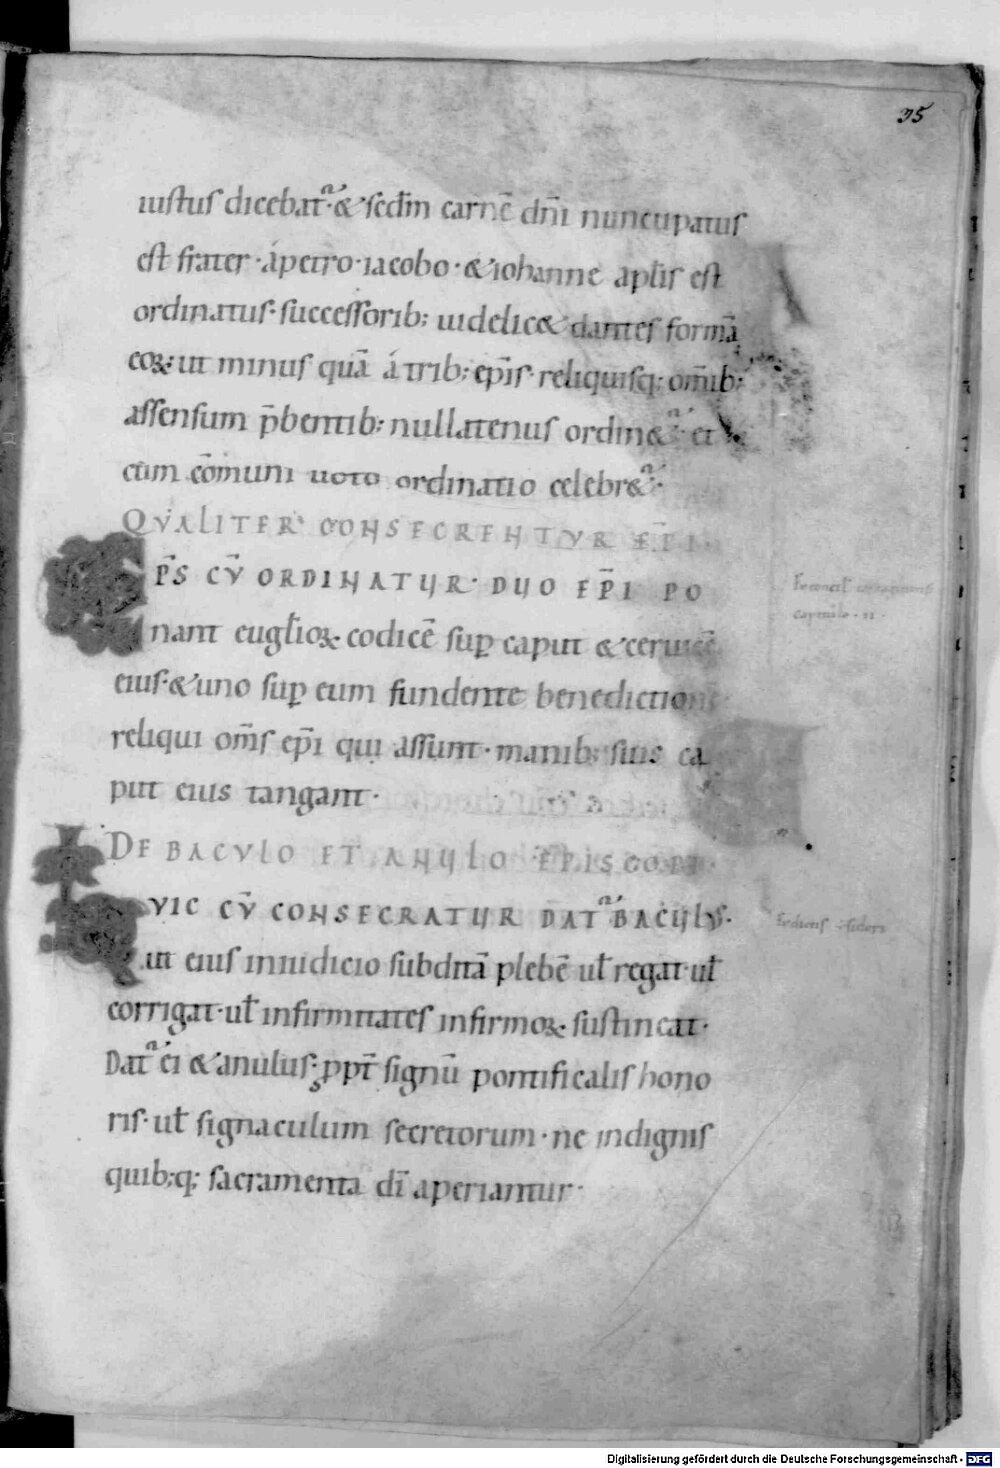 35
iustus dicebat᷑·&secd̄m carnē dn̄i nuncupatus
est frater·ápetro·iacobo·&iohanne apl̄is est
ordinatus·successorib; uidelic& dantes formā
eoꝝ·ut minus quā á trib; ep̄is·reliquisq; om̄ib;
assensum p̄bentib; nullatenus ordin&᷑· et
cum cōmuni uoto ordinatio celebr&᷑·
QVALITER CONSECRENTVR EP̄I·
EP̄S CV̄ ORDINATUR· DUO EP̄I PO
nant eugl̄ioꝝ codicē sup̱ caput & ceruicē
eius·&uno sup̱ eum fundente benedictionē·
reliqui om̄s ep̄i qui assunt·manib; suis ca
put eius tangant·
DE BACVLO ET ANULO EPISCOPI·
HVIC CV̄ CONSECRATUR DAT᷑ BACULUS·
ut eius iniudicio subditā plebē ul̄ regat·ul̄
corrigat·ul̄ infirmitates infirmoꝝ sustineat·
Dat᷑ ei &anulus; ꝓpt̄ signū pontificalis hono
ris·ul̄ signaculum secretorum·ne indignis
quib;q; sacramenta dī aperiantur·
Digitalisierung gefördert durch die Deutsche Forschungsgemeinschaft - DFG